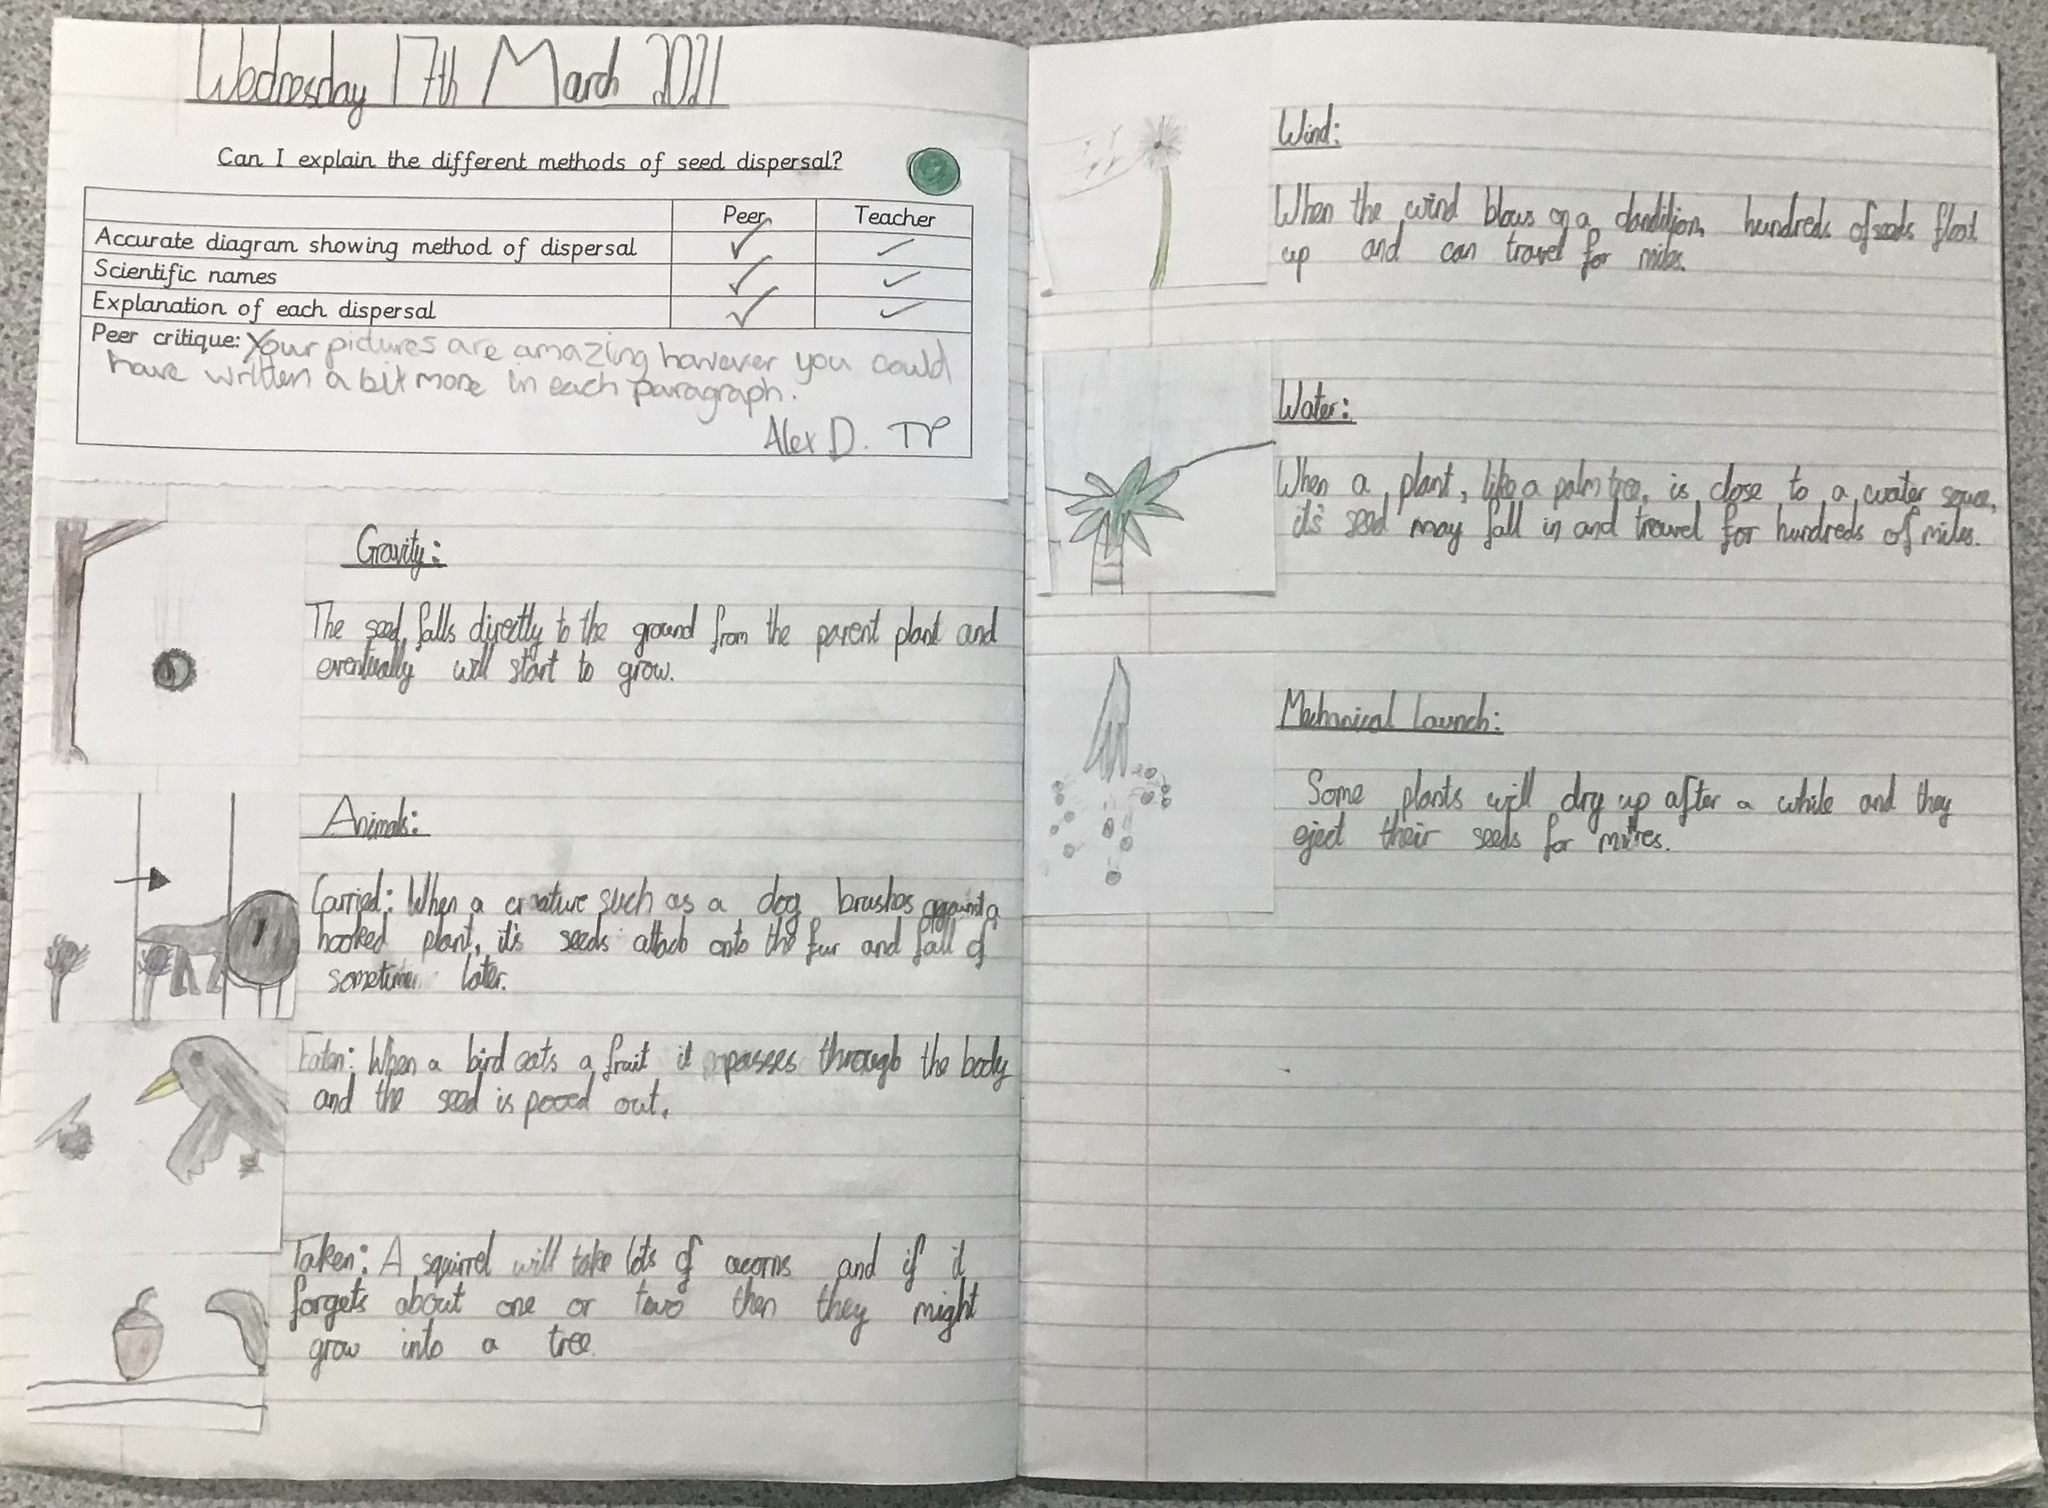 Wednesday 17th March 2021
Can I explain the different methods of seed dispersal?
Peer Teacher
Accurate diagram showing method of dispersal ✓ ✓
Scientific names ✓ ✓
Explanation of each dispersal ✓ ✓
Peer critique: Your pictures are amazing however you could
have written a bit more in each paragraph.
Alex D. TP
Gravity:
The seed falls directly to the ground from the parent plant and
eventually will start to grow.
Animals:
Carried: When a creature such as a dog brushes against a
hooked plant, it's seeds attach onto the fur and fall of
sometime later.
Eaten: When a bird eats a fruit it passes through the body
and the seed is pooed out.
Taken: A squirrel will take lots of acorns and if it
forgets about one or two then they might
grow into a tree.
Wind:
When the wind blows on a dandilion, hundreds of seeds float
up and can travel for miles.
Water:
When a plant, like a palm tree, is close to a water source,
it's seed may fall in and travel for hundreds of miles.
Mechanical Launch:
Some plants will dry up after a while and they
eject their seeds for metres.